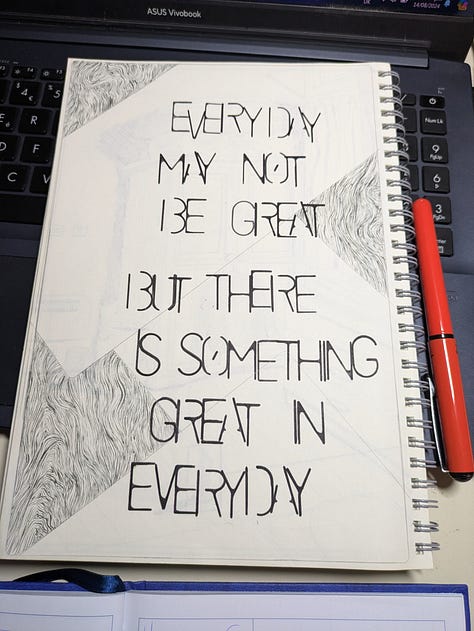 ASUS Vivobook
14/08/2024
EVERYDAY
MAY NOT
BE GREAT
BUT THERE
IS SOMETHING
GREAT IN
EVERYDAY
Num Lk